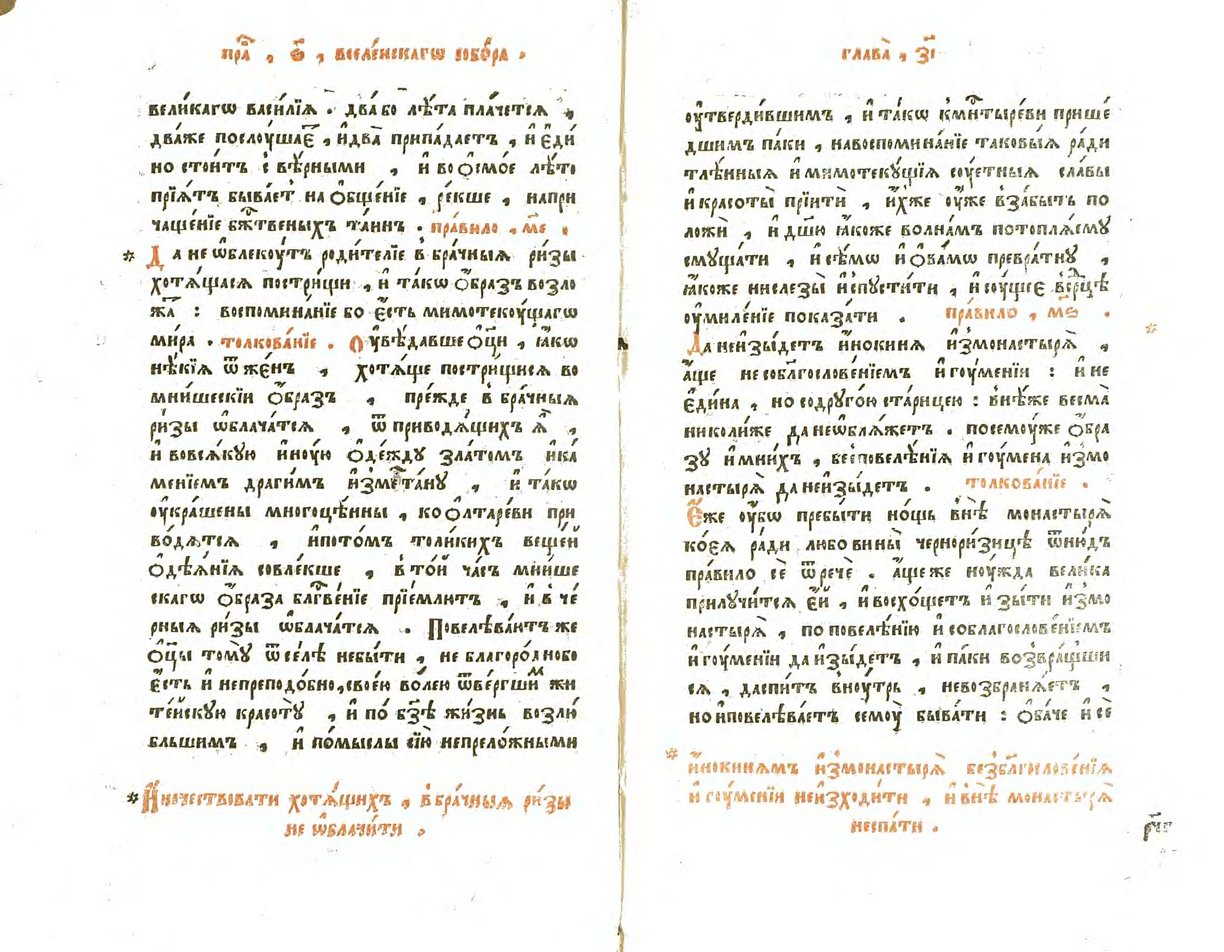 пра҇ , ѕ҃ , вселе́нскагѡ собо́ра .
вели́кагѡ васи́лїѧ . два́ бо лѣ́та пла́четсѧ ,
два́же послꙋ́шае҇ , и҆два̀ припа́даетъ , и҆ є҆ди́
но стои́тъ с вѣ́рными , и҆ во ѻ҆смо́е лѣ́то
прїѧ́тъ быва́ет на ѻ҆бще́нїе , ре́кше , на при
чаще́нїе бж҇твеныхъ та́инъ . пра́вило , м҃е .
Да не ѡ҆блекꙋ́тъ роди́телїе в бра́чныѧ ри́зы
хотѧ́щаѧсѧ постри́щи , и҆ та́кѡ ѻ҆́бразъ возло
жа҇ : воспомина́нїе бо є҆́сть мимотекꙋ́щагѡ
ми́ра . толкова́нїе . Оу҆вѣ́давше ѻ҆ц҃ы , ꙗ҆́кѡ
нѣ́кїѧ ѿ же́нъ , хотѧ́ще постри́щисѧ во
мни́шескїи ѻ҆́бразъ , пре́жде в бра́чныѧ
ри́зы ѡ҆блача́тсѧ , ѿ приводѧ́щихъ ѧ҆̀ ,
и҆ вовсѧ́кꙋю и҆нꙋ́ю ѻ҆де́ждꙋ зла́томъ и҆ ка
ме́нїемъ драги́мъ и҆змѣ́танꙋ , и҆ та́кѡ
оу҆кра́шены многоцѣ́нны , ко ѻ҆лтаре́ви при
во́дѧтсѧ , и҆ пото́мъ толи́кихъ веще́й
ѻ҆дѣѧ́нїѧ совле́кше , в то́й ча́съ мни́ше
скагѡ ѻ҆́браза блг҇ве́нїе прїе́млютъ , и҆ в че́
рныѧ ри́зы ѡ҆блача́тсѧ . Повелѣва́ютъ же
ѻ҆ц҃ы томꙋ̀ ѿселѣ̀ небы́ти , не благоро́дно бо
є҆́сть и҆ непреподо́бно, свое́ю во́лею ѿве́ргшимъ жи
те́йскꙋю красотꙋ̀ , и҆ по́ бз҃ѣ жи́знь возлю́
бльшимъ , и҆ по́мыслы сїю̀ непрело́жными
* И҆́ночествовати хотѧ́щихъ , в бра́чныѧ ри́зы
не ѡ҆блачи́ти .
глава̀ , з҃і
оу҆тверди́вшимъ , и҆ та́кѡ к мн҇тыре́ви прише́
дшимъ па́ки , навоспомина́нїе таковы́ѧ ра́ди
тлѣ́нныѧ и҆ мимотекꙋ́щїѧ сꙋ́етныѧ сла́вы
и҆ красоты̀ прїитѝ , и҆́хже оу҆́же в забы́ть по
ложѝ , и҆ дш҃ю ꙗ҆́коже волна́мъ потоплѧ́емꙋ
смꙋща́ти , и҆ сѣ́мѡ и҆ ѻ҆ва́мѡ превра́тнꙋ ,
ꙗ҆́коже ни слезы̀ и҆спꙋсти́ти , и҆ сꙋ́щее в се́рдцѣ
оу҆миле́нїе показа́ти . пра́вило , мѕ҃ .
Да не и҆зы́детъ и҆́нокинѧ и҆з монастырѧ̀ ,
а҆́ще не собл҃гослове́нїемъ и҆гꙋ́менїи : и҆ не
є҆ди́на , но со дрꙋго́ю ста́рицею : внѣ́ же весма̀
николи́же да не ѡ҆блѧ́жетъ . по семꙋ́же ѻ҆́бра
зꙋ и҆ мни́хъ , бесповелѣ́нїѧ и҆гꙋ́мена и҆з мо
настырѧ̀ да не и҆зы́детъ . толкова́нїе .
Є҆́же оу҆́бѡ пребы́ти но́щь внѣ̀ монастырѧ̀
ко́еѧ ра́ди любо вины̀ черноризи́цѣ ѿню́дъ
пра́вило сѐ ѿречѐ . а҆́ще же нꙋ́жда вели́ка
прилꙋчи́тсѧ є҆́й , и҆ восхо́щетъ и҆зы́ти и҆з мо
настырѧ̀ , по повелѣ́нїю и҆ соблагослове́нїемъ
и҆гꙋ́менїи да и҆зы́детъ , и҆ па́ки возврати́вши
сѧ , да спи́тъ внꙋ́трь , не возбранѧ́етъ ,
но и҆ повелѣва́етъ семꙋ̀ быва́ти : ѻ҆ба́че и҆ сѐ
* И҆́нокинѧмъ и҆з монастырѧ̀ без бл҃гослове́нїѧ
и҆гꙋ́менїи не и҆зходи́ти , и҆ внѣ̀ монастырѧ̀
не спа́ти .